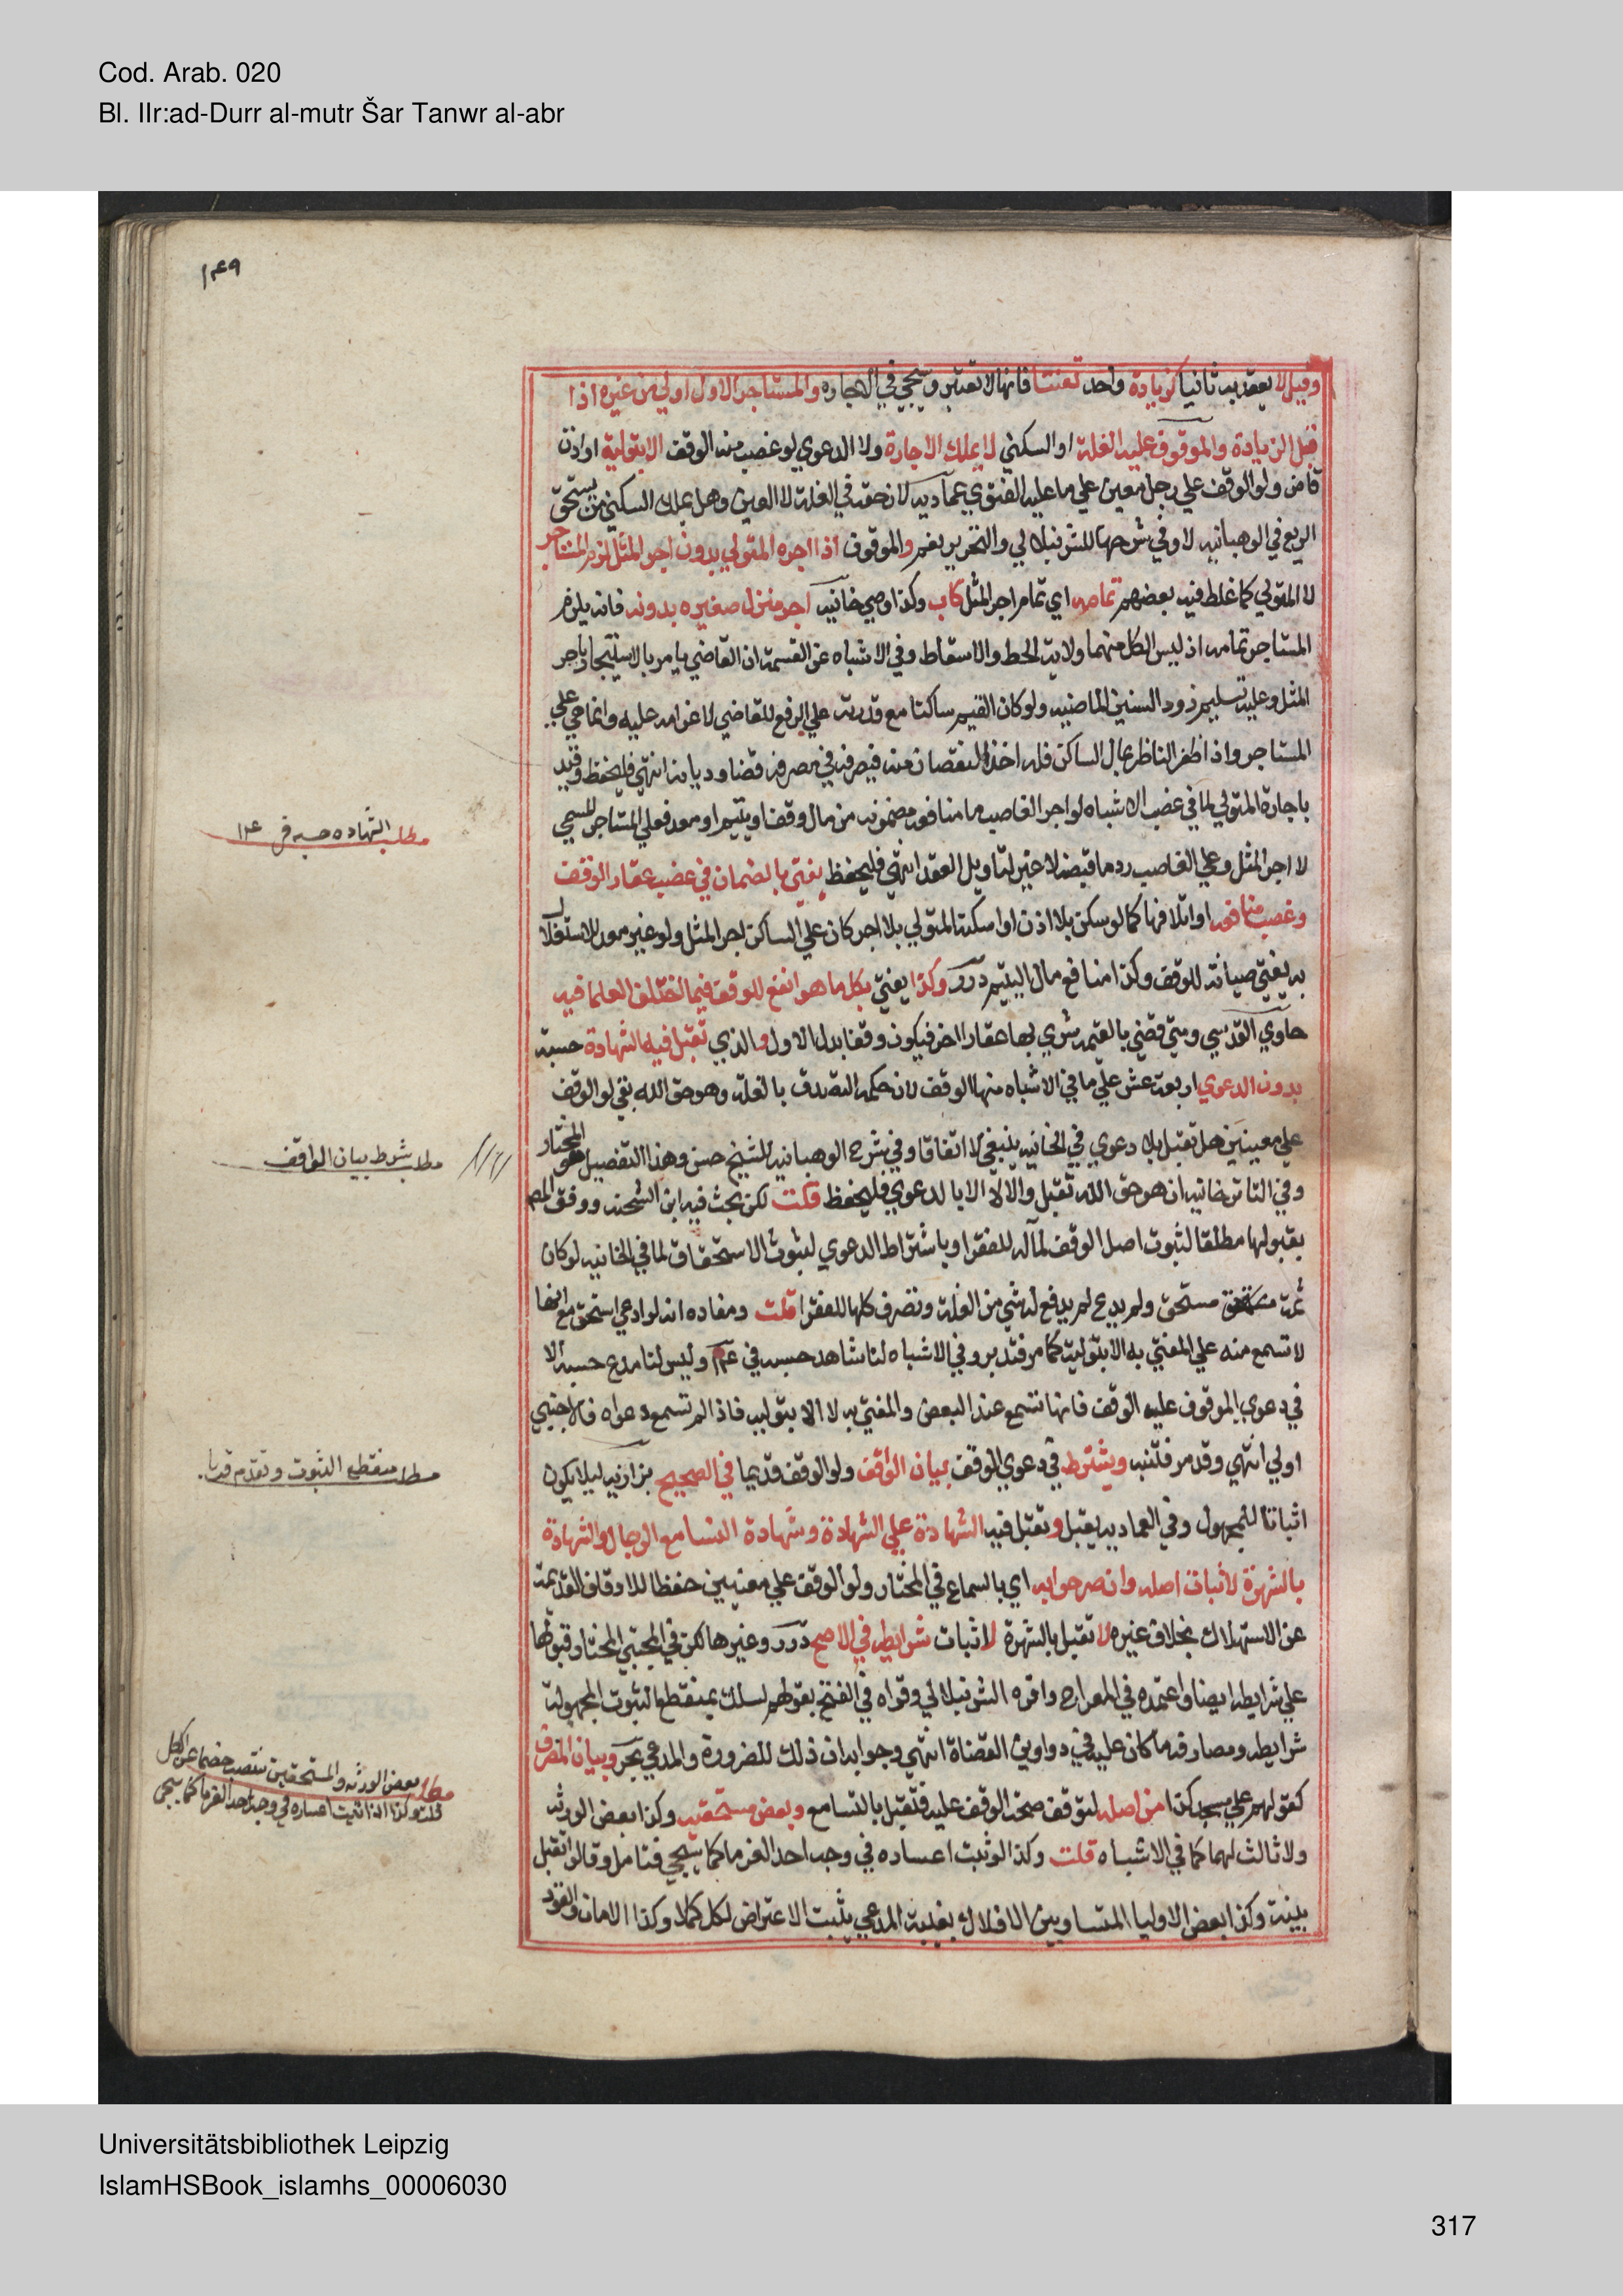 Cod. Arab. 020
Bl. IIr:ad-Durr al-mutr Šar Tanwr al-abr
١٤٩
وقيل لا يعقد به ثانيا كزيادة واحد تعنتا فانها لا تعتبر وسيجي في الاجارة والمستاجر الاول اولي من غيره اذا
قبل الزيادة والموقوف عليه الغلة او السكني لا يملك الاجارة ولا الدعوي لو غصب منه الوقف الا بتولية او اذن
قاض ولو الوقف علي رجل معين علي ما عليه الفتوي عماديه لان حقه في الغلة لا العين وهل يملك السكني من يستحق
الريع في الوهبانيه لا وفي شرحها للشرنبلالي والتحرير نعم والموقوف اذا اجره المتولي بدون اجر المثل لزم المستاجر
لا المتولي كما غلط فيه بعضهم تمامه اي تمام اجر المثل كاب وكذا وصي خانيه اجر منزل صغيره بدونه فانه يلزم
المستاجر تمامه اذ ليس لكل منهما ولاية الحط والاسقاط وفي الاشباه عن القسمة ان القاضي يامر بالاستيجار باجر
المثل وعليه تسليم زود السنين الماضيه ولو كان القيم ساكتا مع قدرته علي الرفع للقاضي لا غرامه عليه وانما هي علي
المستاجر واذا ظفر الناظر بمال الساكن فله اخذ النقصان منه فيصرفه في مصرفه قضا وديانة انتهي فليحفظ وقيد
باجارة المتولي لما في غصب الاشباه لو اجر الغاصب ما منافعه مضمونه من مال وقف او يتيم او معد فعلي المستاجر المسمي
لا اجر المثل وعلي الغاصب رد ما قبضه لا غير لتاويل العقد انتهي فليحفظ يفتي بالضمان في غصب عقار الوقف
وغصب منافعه او اتلافها كما لو سكن بلا اذن او اسكنه المتولي بلا اجر كان علي الساكن اجر المثل ولو غير معد للاستغلال
به يفتي صيانة للوقف وكذا منافع مال اليتيم درر وكذا يفتي بكل ما هو انفع للوقف فيما اختلف العلما فيه
حاوي القدسي ومتي قضي بالقيمه شري بها عقارا اخر فيكون وقفا بدل الاول والذي تقبل فيه الشهادة حسبة
بدون الدعوي اربعة عشر علي ما في الاشباه منها الوقف لان حكمه التصدق بالغلة وهو حق الله بقي لو الوقف
علي معينين هل تقبل بلا دعوي في الخانيه ينبغي لا اتفاقا وفي شرح الوهبانيه للشيخ حسن وهذا التفصيل هو المختار
وفي التاترخانيه ان هو حق الله تقبل والا لا الا بالدعوي فليحفظ قلت لكن بحث فيه ابن الشحنه ووفق المص
بقبولها مطلقا لثبوت اصل الوقف لمآله للفقرا وباشتراط الدعوي لثبوت الاستحقاق لما في الخانيه لو كان
ثمة مستحق ولم يدع لم يدفع له شي من الغلة وتصرف كلها للفقرا قلت ومفاده انه لو ادعي استحق مع انها
لا تسمع منه علي المفتي به الا بتولية كما مر فتدبر وفي الاشباه لنا شاهد حسبه في وليس لنا مدع حسبة الا
في دعوي الموقوف عليه الوقف فانها تسمع عند البعض والمفتي به لا الا بتوليه فاذا لم تسمع دعواه فالاجنبي
اولي انتهي وقد مر فتنبه ويشترط في دعوي الوقف بيان الواقف ولو الوقف قديما في الصحيح بزازيه ليلا يكون
اثباتا للمجهول وفي العماديه يقبل وتقبل فيه الشهادة علي الشهادة وشهادة النسا مع الرجال والشهادة
بالشهرة لاثبات اصله وان صرحوا به اي بالسماع في المختار ولو الوقف علي معينين حفظا للاوقاف القديمة
عن الاستهلاك بخلاف غيره لا تقبل بالشهرة لاثبات شرايطه في الاصح درر وغيرها لكن في المجتبي المختار قبولها
علي شرايطه ايضا واعتمده في المعراج واقره الشرنبلالي وقواه في الفتح بقولهم يسلك بمنقطع الثبوت المجهولة
شرايطه ومصارفه ما كان عليه في دواوين القضاة انتهي وجوابه ان ذلك للضرورة والمدعي بحر وبيان المصرف
كقولهم علي مسجد كذا من اصله لتوقف صحة الوقف عليه فتقبل بالتسامع وبعض مستحقيه وكذا بعض الورثه
ولا ثالث لهما كما في الاشباه قلت وكذا لو ثبت اعساره في وجه احد الغرما كما سيجي فتامل وقالوا تقبل
بينة وكذا بعض الاوليا المتساويين يثبت الاعتراض لكل كملا وكذا الامان والقود
مطلب الشهاده حسبه في ١٤
مطلب شرط بيان الواقف
مطلب منقطع الثبوت وتقدم قريبا
مطلب بعض الورثه والمستحقين تنتصب خصما عن الكل
قلت وكذا اذا ثبت اعساره في وجه احد الغرما كما سيجي
Universitätsbibliothek Leipzig
IslamHSBook_islamhs_00006030
317